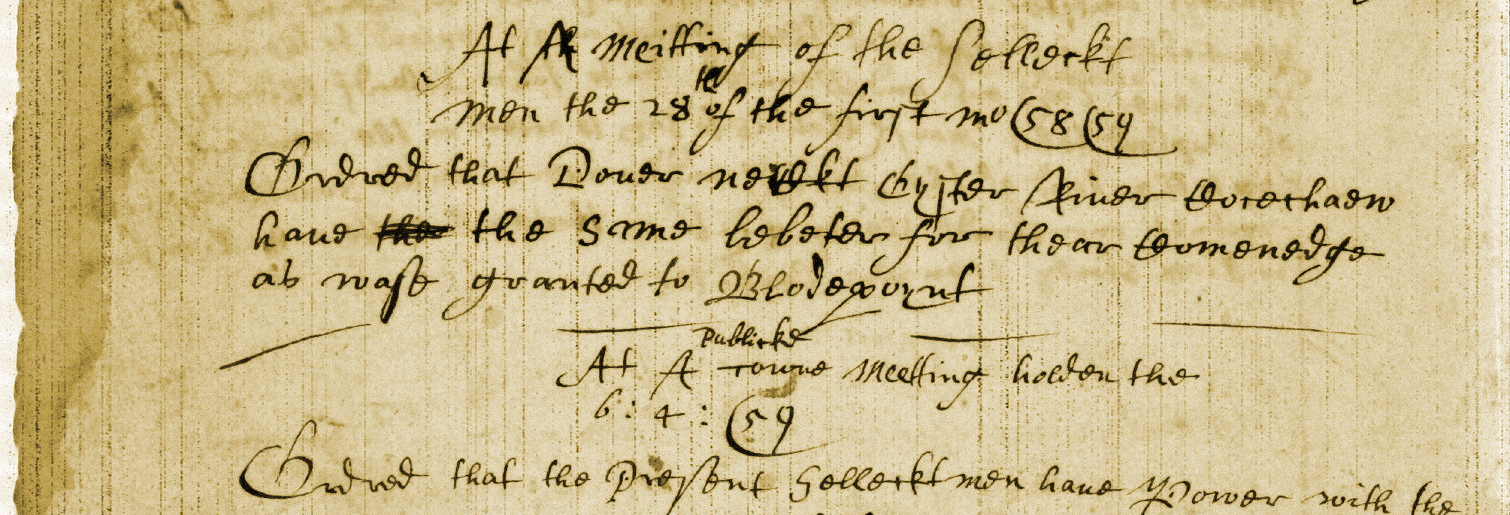 At A meitting of the Selleckt
men the 28th of the first mo (58 (59
Ordred that Douer neckt Oyster River Cocechaew
haue the the Same lebeter for thear Comenedge
as wase granted to Blodepoynt
At A Publicke towne Meetting holden the
6 : 4 : (59
Ordred that the Present Selleckt men haue Power with the